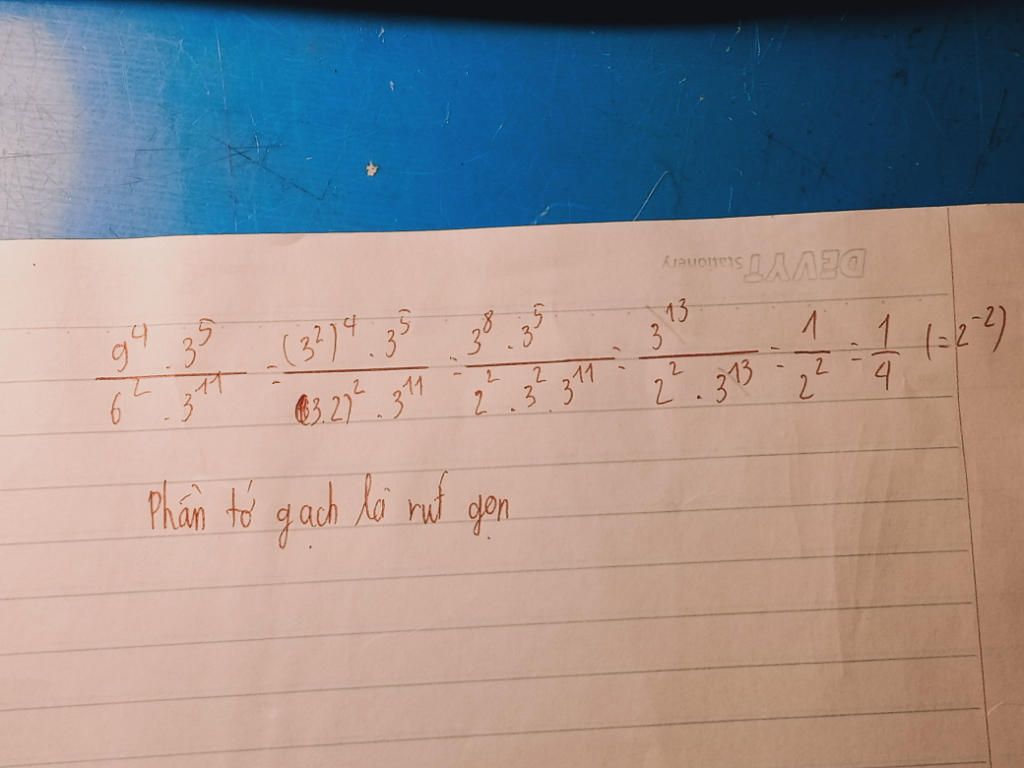 DEVYT Stationery
9⁴ . 3⁵ / 6² . 3¹¹ = (3²)⁴ . 3⁵ / (3.2)² . 3¹¹ = 3⁸ . 3⁵ / 2² . 3² . 3¹¹ = 3¹³ / 2² . 3¹³ = 1 / 2² = 1 / 4 (= 2⁻²)
Phần tớ gạch là rút gọn